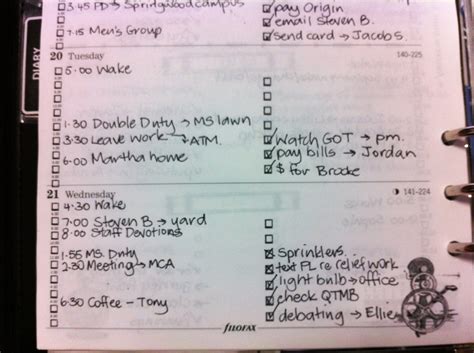 3.45 PD → Springwood campus
pay Origin
email Steven B.
7.15 Men's Group
send card → Jacobs.
DIARY
20 Tuesday
140-225
5.00 Wake
1.30 Double Duty → MS lawn
3.30 Leave work → ATM.
Watch GOT → pm.
pay bills → Jordan
6.00 Martha home
$ for Brooke
21 Wednesday
141-224
4.30 Wake
7.00 Steven B → yard
8.00 Staff Devotions
1.55 MS Duty
Sprinklers..
2.30 Meeting → MCA
text PL re relief work
light bulb → office
check QTMB
6.30 Coffee - Tony
debating → Ellie
filofax